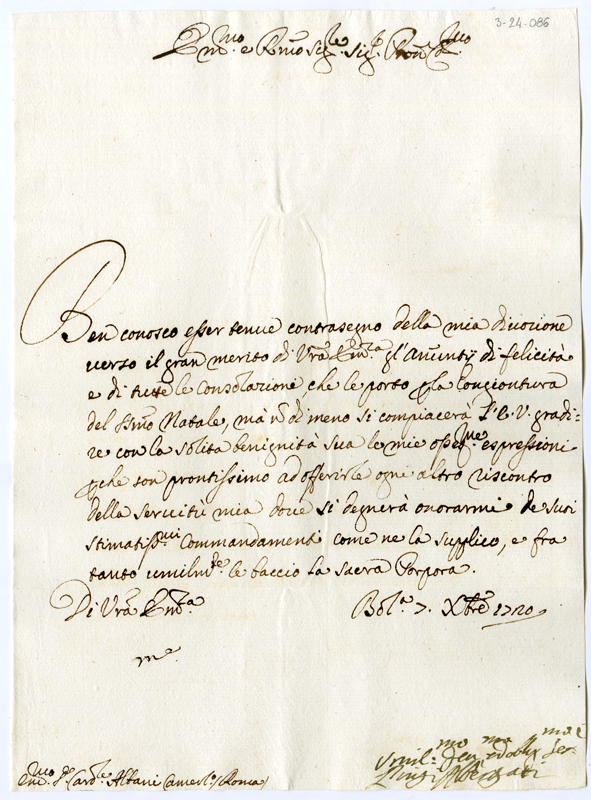 3-24-086
E.mo e R.mo Sig.re Sig.r Pron Col.mo
Ben conosco esser tenue contrasegno della mia divozione
verso il gran merito di Vra Em.za gl'Anunty di felicità
e di tutte le Consolazione, che le porto p la Congiontura
del SSmo Natale, mà n di meno si compiacerà l'E.V. gradi=
re con la solita benignità sua le mie osseq.me espressioni
che son prontissimo ad offerirle ogni altro riscontro
della servitù mia dove si degnerà onorarmi de suoi
stimatiss.mi Commandamenti come ne la supplico, e fra
tanto umilm.te le baccio la Sacra Porpora.
Di Vra Em.za
Bol.a 7. Xbre 1720
Em.mo S.r Card.le Albani Camerl.o Roma
Umil.mo Dev.mo ed obbl.mo Ser.e